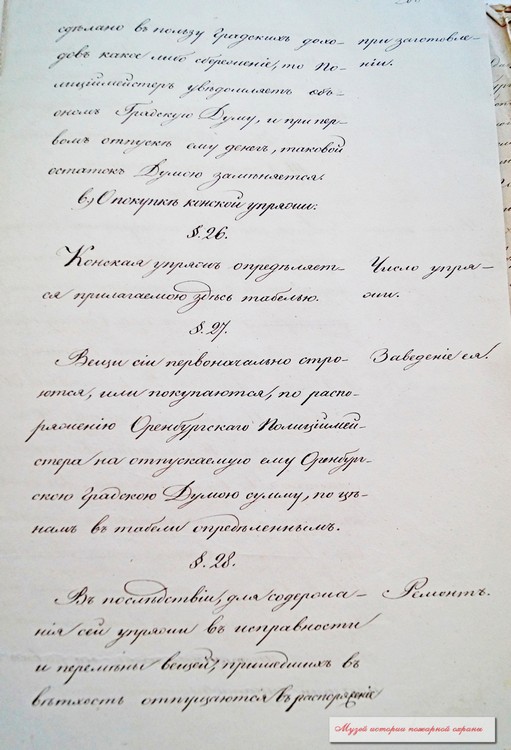 сдѣлано въ пользу Градскихъ дохо- при заготовле-
довъ какое либо сбереженіе, то По- ніи.
лиціймейстеръ увѣдомляетъ объ
ономъ Градскую Думу, и при пер-
вомъ отпускѣ ему денегъ, таковой
остатокъ Думою замѣняется.
в) О покупкѣ конской упряжи.
§. 26.
Конская упряжь опредѣляет- Число упря-
ся прилагаемою здѣсь табелью. жи.
§. 27.
Вещи сіи первоначально стро- Заведеніе ея.
ются, или покупаются, по распо-
ряженію Оренбургскаго Полиціймей-
стера на отпускаемую ему Оренбург-
скою Градскою Думою сумму, по цѣ-
намъ въ табели опредѣленнымъ.
§. 28.
Въ послѣдствіи, для содержа- Ремонтъ.
нія сей упряжи въ исправности
и перемѣны вещей, пришедшихъ въ
вѣтхость отпущаются въ распоряженіе
Музей истории пожарной охраны